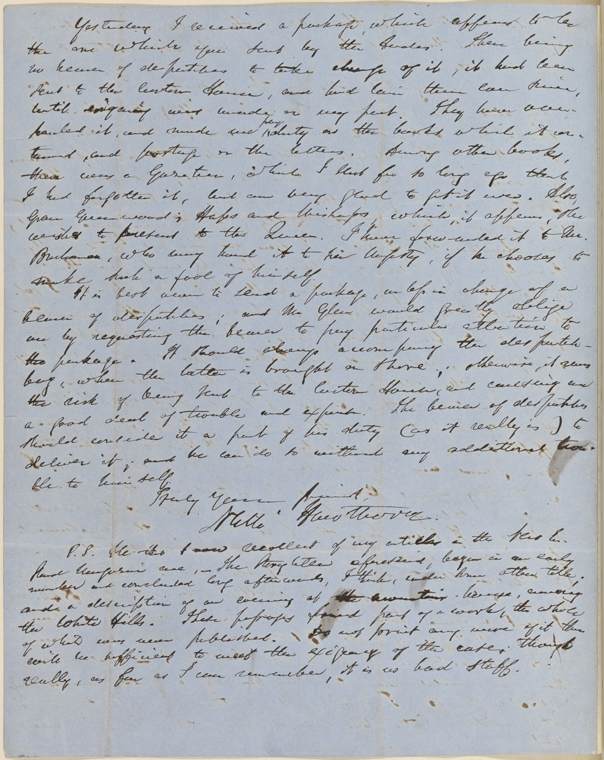 Yesterday I received a package, which appears to be
the one which you sent by the Arabia. There being
no bearer of despatches to take charge of it, it had been
sent to the Custom House, and had lain there ever since,
until enquiry was made on my part. They have over-
hauled it, and made me pay duty on the books which it con-
tained, and postage on the letters. Among other books,
there was a Gazetteer, which I sent for so long ago that
I had forgotten it, but am very glad to get it now. Also,
Grace Greenwood's Haps and Mishaps, which, it appears, she
wishes to present to the Queen. I have forwarded it to Mr.
Buchanan, who may hand it to her Majesty, if he chooses to
make such a fool of himself.
It is best never to send a package, unless in charge of a
bearer of despatches; and Mr Glen would greatly oblige
me by requesting the bearer to pay particular attention to
the package. It should always accompany the despatch-
bag, when the latter is brought on shore; otherwise, it runs
the risk of being sent to the Custom House, and causing me
a good deal of trouble and expense. The bearer of despatches
should consider it a part of his duty (as it really is) to
deliver it; and he can do so without any additional trou-
ble to himself.
Truly Your friend,
Nathl Hawthorne.
P.S. The two recollect of my articles in the New En-
gland Magazine are, The Storyteller aforesaid, began in an early
number and concluded long afterwards, I think, under some other title;
and a description of an evening at the house, among
the White Hills. These perhaps formed part of a work, the whole
of which was never published. Do not print any more if these
will be sufficient to meet the exigency of the case; though
really, as far as I can remember, it is no bad stuff.